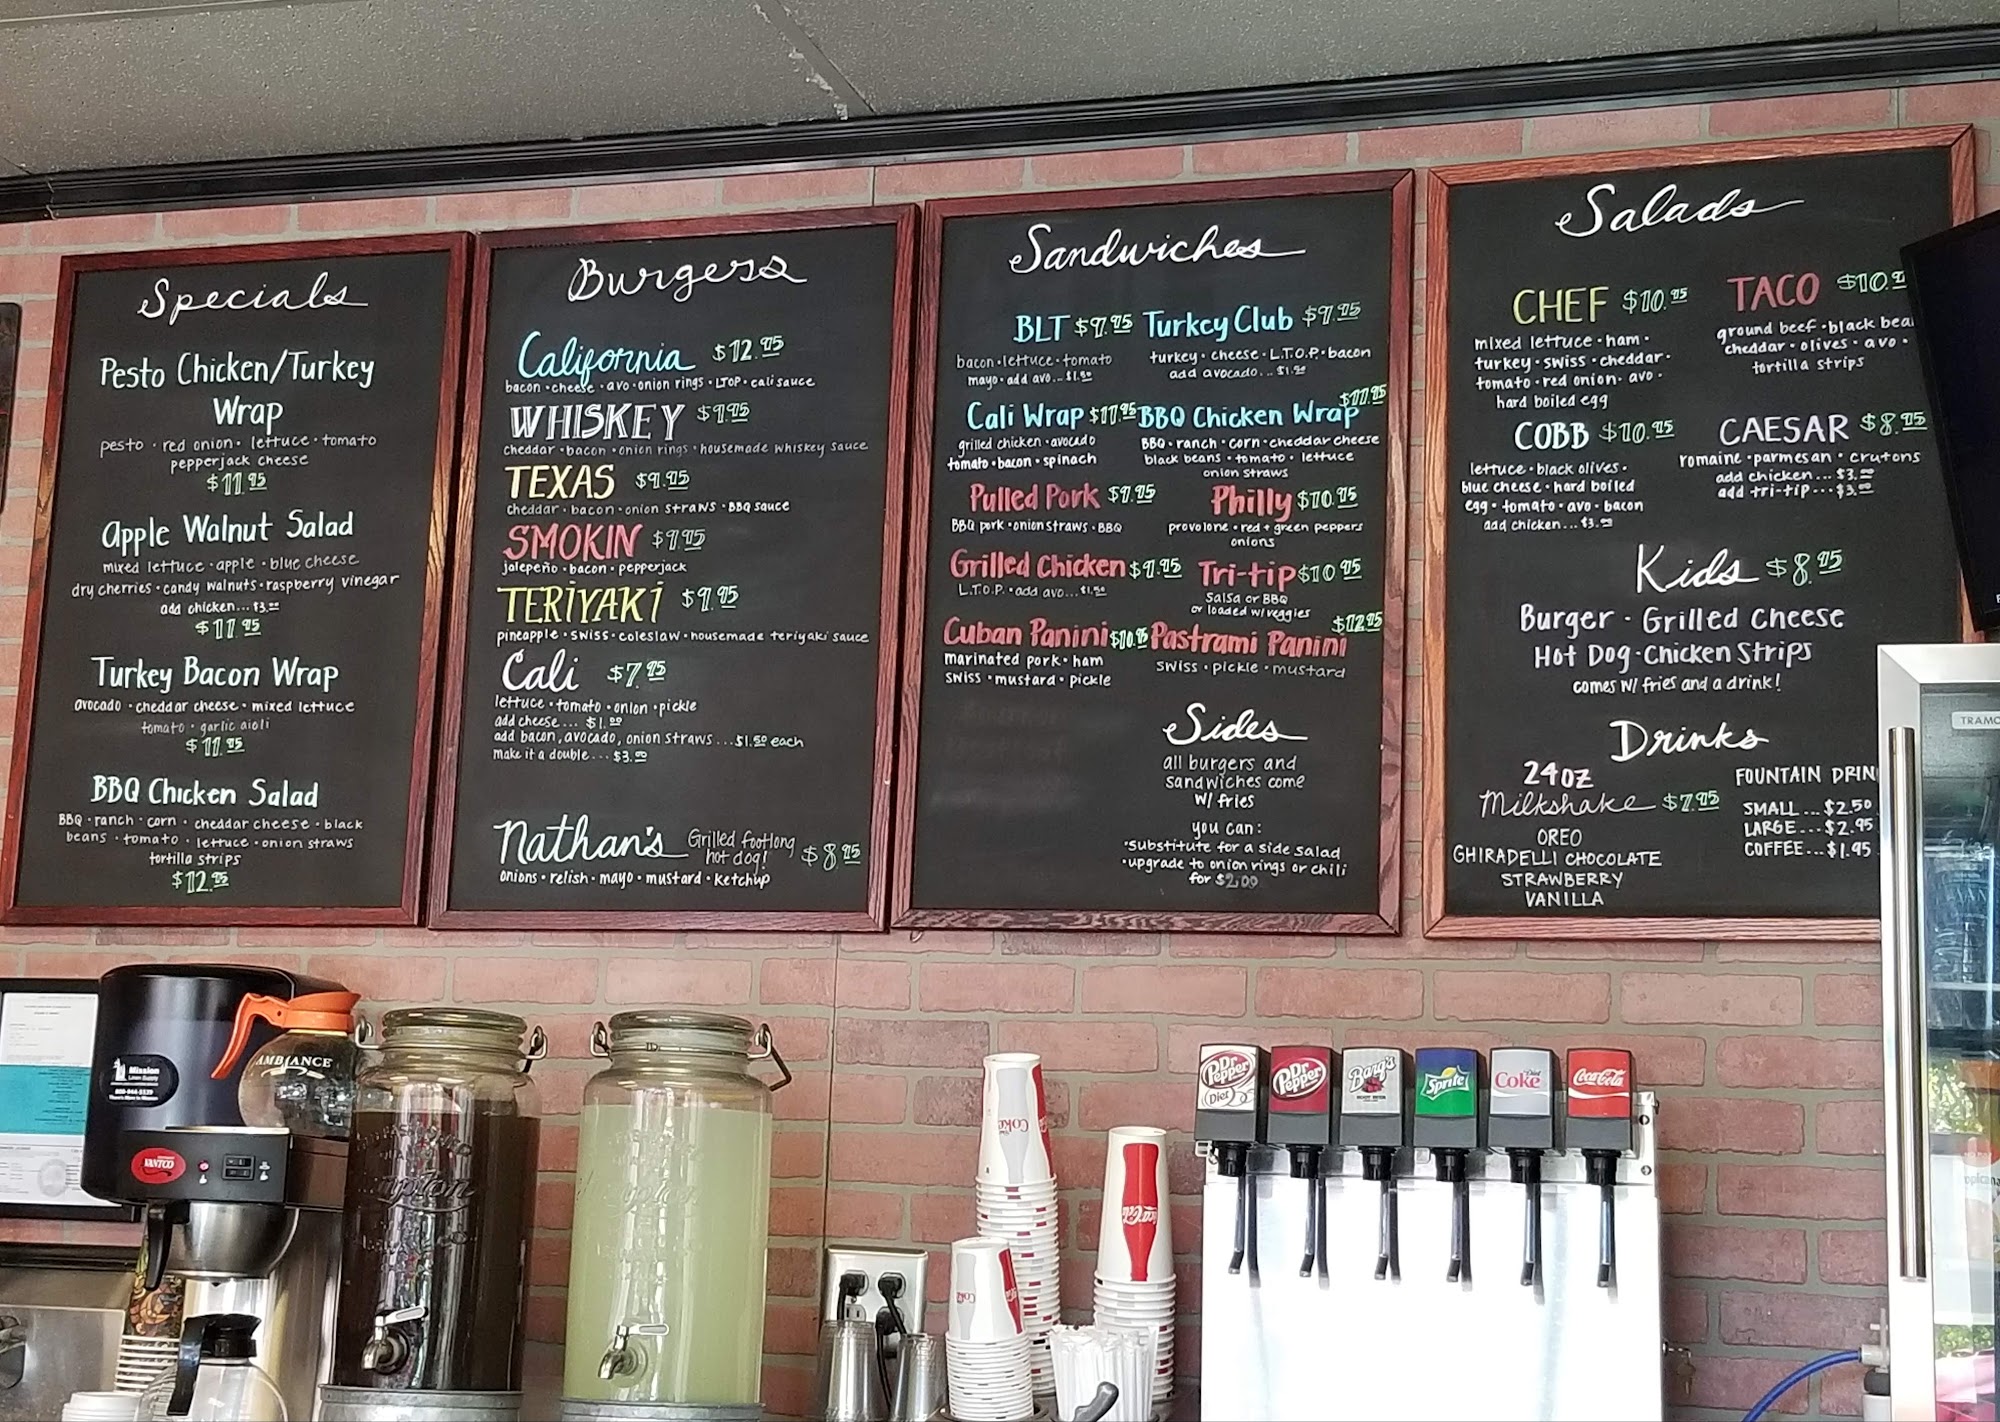 Specials
Pesto Chicken/Turkey
Wrap
pesto · red onion · lettuce · tomato
pepperjack cheese
$11.95
Apple Walnut Salad
mixed lettuce · apple · blue cheese
dry cherries · candy walnuts · raspberry vinegar
add chicken... $3.00
$11.95
Turkey Bacon Wrap
avocado · cheddar cheese · mixed lettuce
tomato · garlic aioli
$11.95
BBQ Chicken Salad
BBQ · ranch · corn · cheddar cheese · black
beans · tomato · lettuce · onion straws
tortilla strips
$12.95
Burgers
California $12.95
bacon · cheese · avo · onion rings · LTOP · cali sauce
WHISKEY $9.95
cheddar · bacon · onion rings · housemade whiskey sauce
TEXAS $9.95
cheddar · bacon · onion straws · BBQ sauce
SMOKIN $9.95
jalepeño · bacon · pepperjack
TERIYAKI $9.95
pineapple · swiss · coleslaw · housemade teriyaki sauce
Cali $7.95
lettuce · tomato · onion · pickle
add cheese... $1.00
add bacon, avocado, onion straws ... $1.50 each
make it a double... $3.00
Nathan's Grilled footlong
hot dog! $8.95
onions · relish · mayo · mustard · ketchup
Sandwiches
BLT $9.95
bacon · lettuce · tomato
mayo · add avo... $1.50
Turkey Club $9.95
turkey · cheese · L.T.O.P. · bacon
add avocado... $1.50
Cali Wrap $11.95
grilled chicken · avocado
tomato · bacon · spinach
BBQ Chicken Wrap $11.95
BBQ · ranch · corn · cheddar cheese
black beans · tomato · lettuce
onion straws
Pulled Pork $9.95
BBQ pork · onion straws · BBQ
Philly $10.95
provolone · red + green peppers
onions
Grilled Chicken $9.95
L.T.O.P. · add avo... $1.50
Tri-tip $10.95
Salsa or BBQ
or loaded w/ veggies
Cuban Panini $10.95
marinated pork · ham
swiss · mustard · pickle
Pastrami Panini $12.95
swiss · pickle · mustard
Sides
all burgers and
sandwiches come
w/ fries
you can:
· substitute for a side salad
· upgrade to onion rings or chili
for $2.00
Salads
CHEF $10.95
mixed lettuce · ham ·
turkey · swiss · cheddar ·
tomato · red onion · avo ·
hard boiled egg
TACO $10.
ground beef · black
cheddar · olives · avo ·
tortilla strips
COBB $10.95
lettuce · black olives ·
blue cheese · hard boiled
egg · tomato · avo · bacon
add chicken... $3.00
CAESAR $8.95
romaine · parmesan · crutons
add chicken... $3.00
add tri-tip... $3.00
Kids $8.95
Burger · Grilled Cheese
Hot Dog · Chicken Strips
comes w/ fries and a drink!
Drinks
24oz
Milkshake $7.95
OREO
GHIRADELLI CHOCOLATE
STRAWBERRY
VANILLA
FOUNTAIN DRIN
SMALL ... $2.50
LARGE ... $2.95
COFFEE ... $1.95
TRAMO
Mission
Linen Supply
AMBIANCE
VANTCO
Coke
Coke
Coca-Cola
Dr Pepper
Diet
Dr Pepper
Barq's
Sprite
Diet
Coke
Coca-Cola